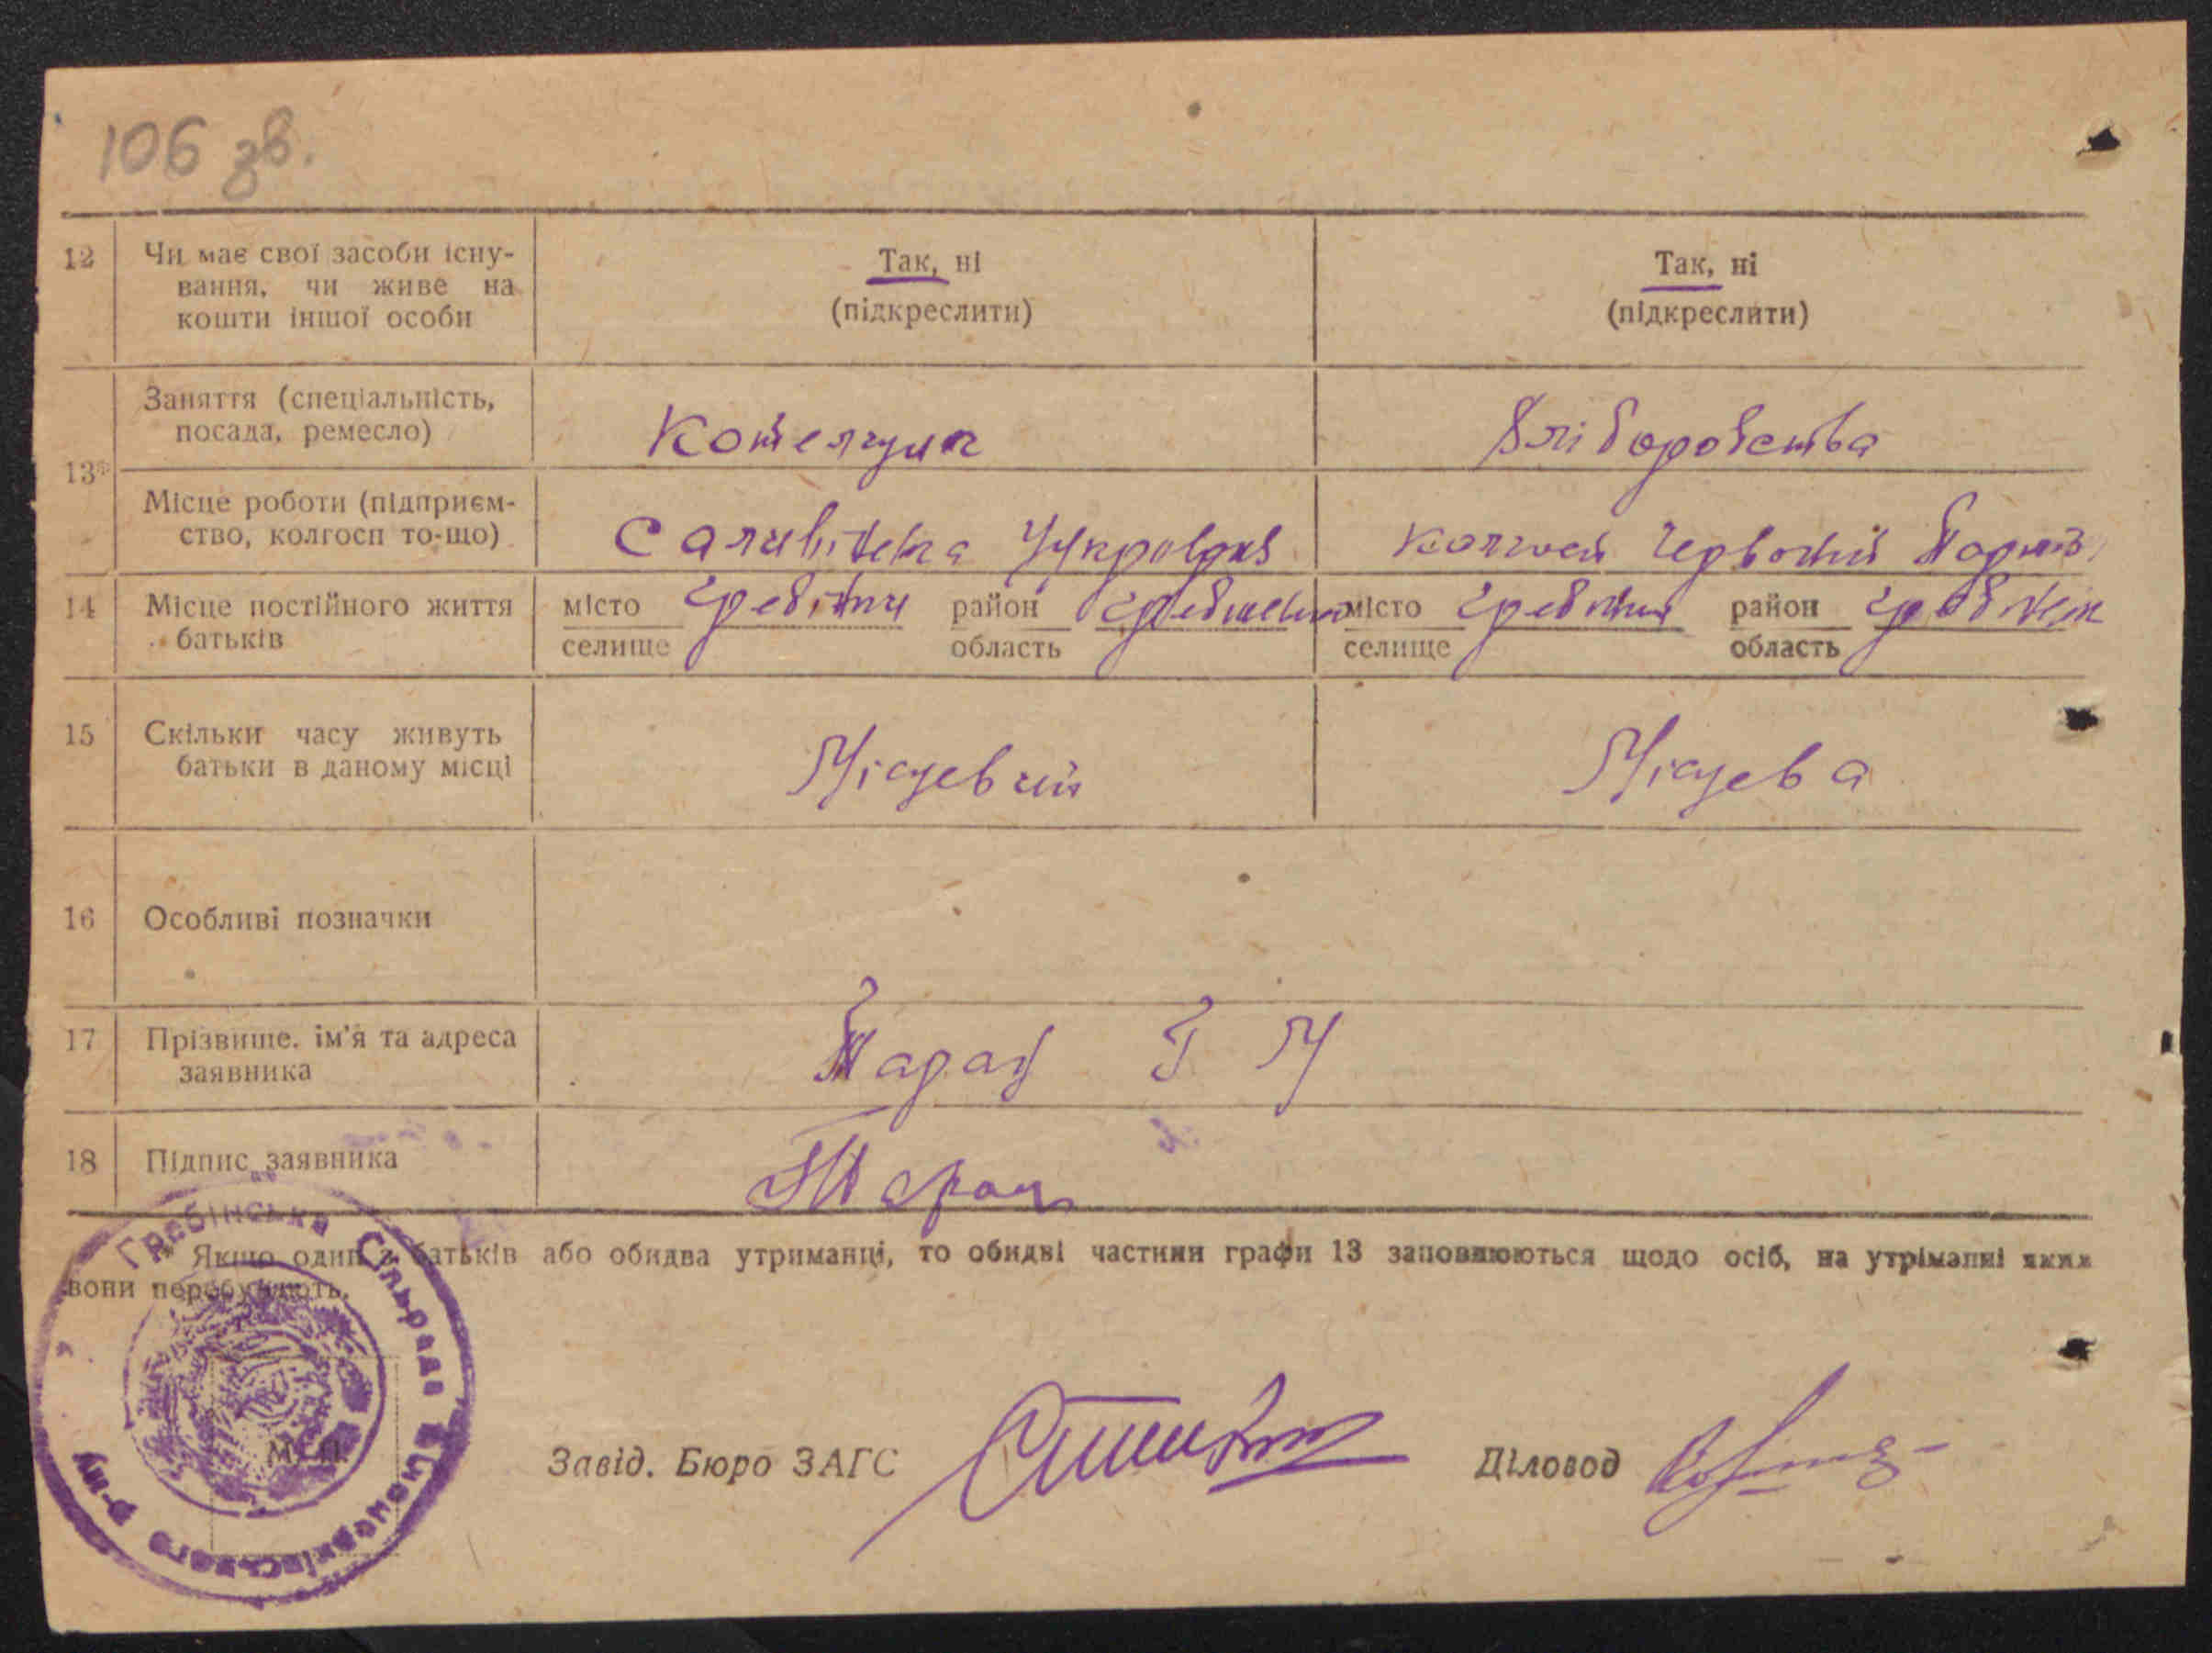 106 зв.
12 Чи має свої засоби існу-
вання, чи живе на
кошти іншої особи
Так, ні
(підкреслити)
Так, ні
(підкреслити)
13*
Заняття (спеціальність,
посада, ремесло)
Котелчик
Хліборобства
Місце роботи (підприєм-
ство, колгосп то-що)
Червоний
14 Місце постійного життя
батьків
місто Гребінки район
селище область
місто Гребінки район
селище область
15 Скільки часу живуть
батьки в даному місці
Місцевий
Місцева
16 Особливі позначки
17 Прізвище, ім'я та адреса
заявника
Таран Г М
18 Підпис заявника
Таран
* Якщо один з батьків або обидва утриманці, то обидві частини графи 13 заповнюються щодо осіб, на утріманні яких
вони перебувають.
М. П.
Гребінська Сільрада Білоцерківського р-ну
Завід. Бюро ЗАГС
Діловод